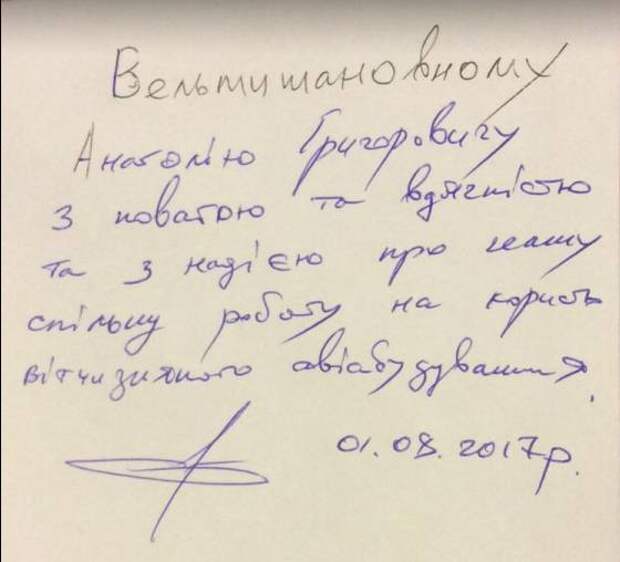 Вельмишановному
Анатолію Григоровичу
з повагою та вдячністю
та з надією про нашу
спільну роботу на користь
вітчизняного авіабудування.
01.08.2017р.